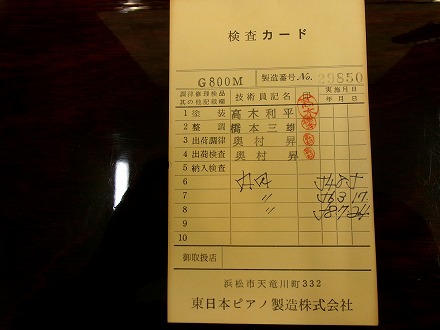 検査カード
G800M 製造番号 No. 29850
調律修理検品 其の他記載欄 技術員記名 印 実施月日 年月日
1 塗装 高木利平
2 整調 橋本三雄
3 出荷調律 奥村昇
4 出荷検査 奥村昇
5 納入検査
6
7 〃
8 〃
9
10
御取扱店
浜松市天竜川町332
東日本ピアノ製造株式会社